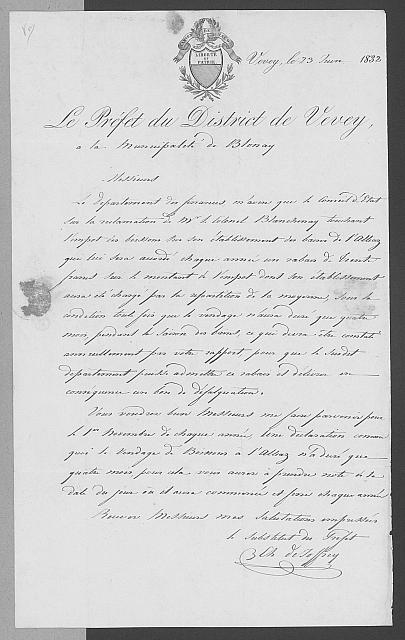 LIBERTÉ
ET
PATRIE
Vevey, le 23 Juin 1832
Le Préfet du District de Vevey,
à la Municipalité de Blonay
Messieurs
Le departement des finances m'avise que le Conseil d'Etat
sur la reclamation de Mr le Colonel Blanchenay touchant
l'impot des boissons sur son établissement des bains de l'Alliaz
que lui sera accordé chaque année un rabais de Trente
francs sur le montant de l'impot dont son établissement
aura été chargé par la repartition de la moyenne, sous la
condition toute fois que le vendage n'aura duré que quatre
mois, pendant la saison des bains, ce que devra être constaté
annuellement par votre rapport pour que le susdit
departement puisse admettre ce rabais et délivrer en
conséquence un bon de défalquation.
Vous voudrez bien Messieurs me faire parvenir pour
le 1er Novembre de chaque année une declaration comme
quoi le vendage de Boissons à l'Alliaz n'a duré que
quatre mois pour cela vous aurez à prendre note de la
date du jour où il aura commencé et fini chaque année
Recevez Messieurs mes salutations empressées
le substitut du Préfet
Ch de Joffrey